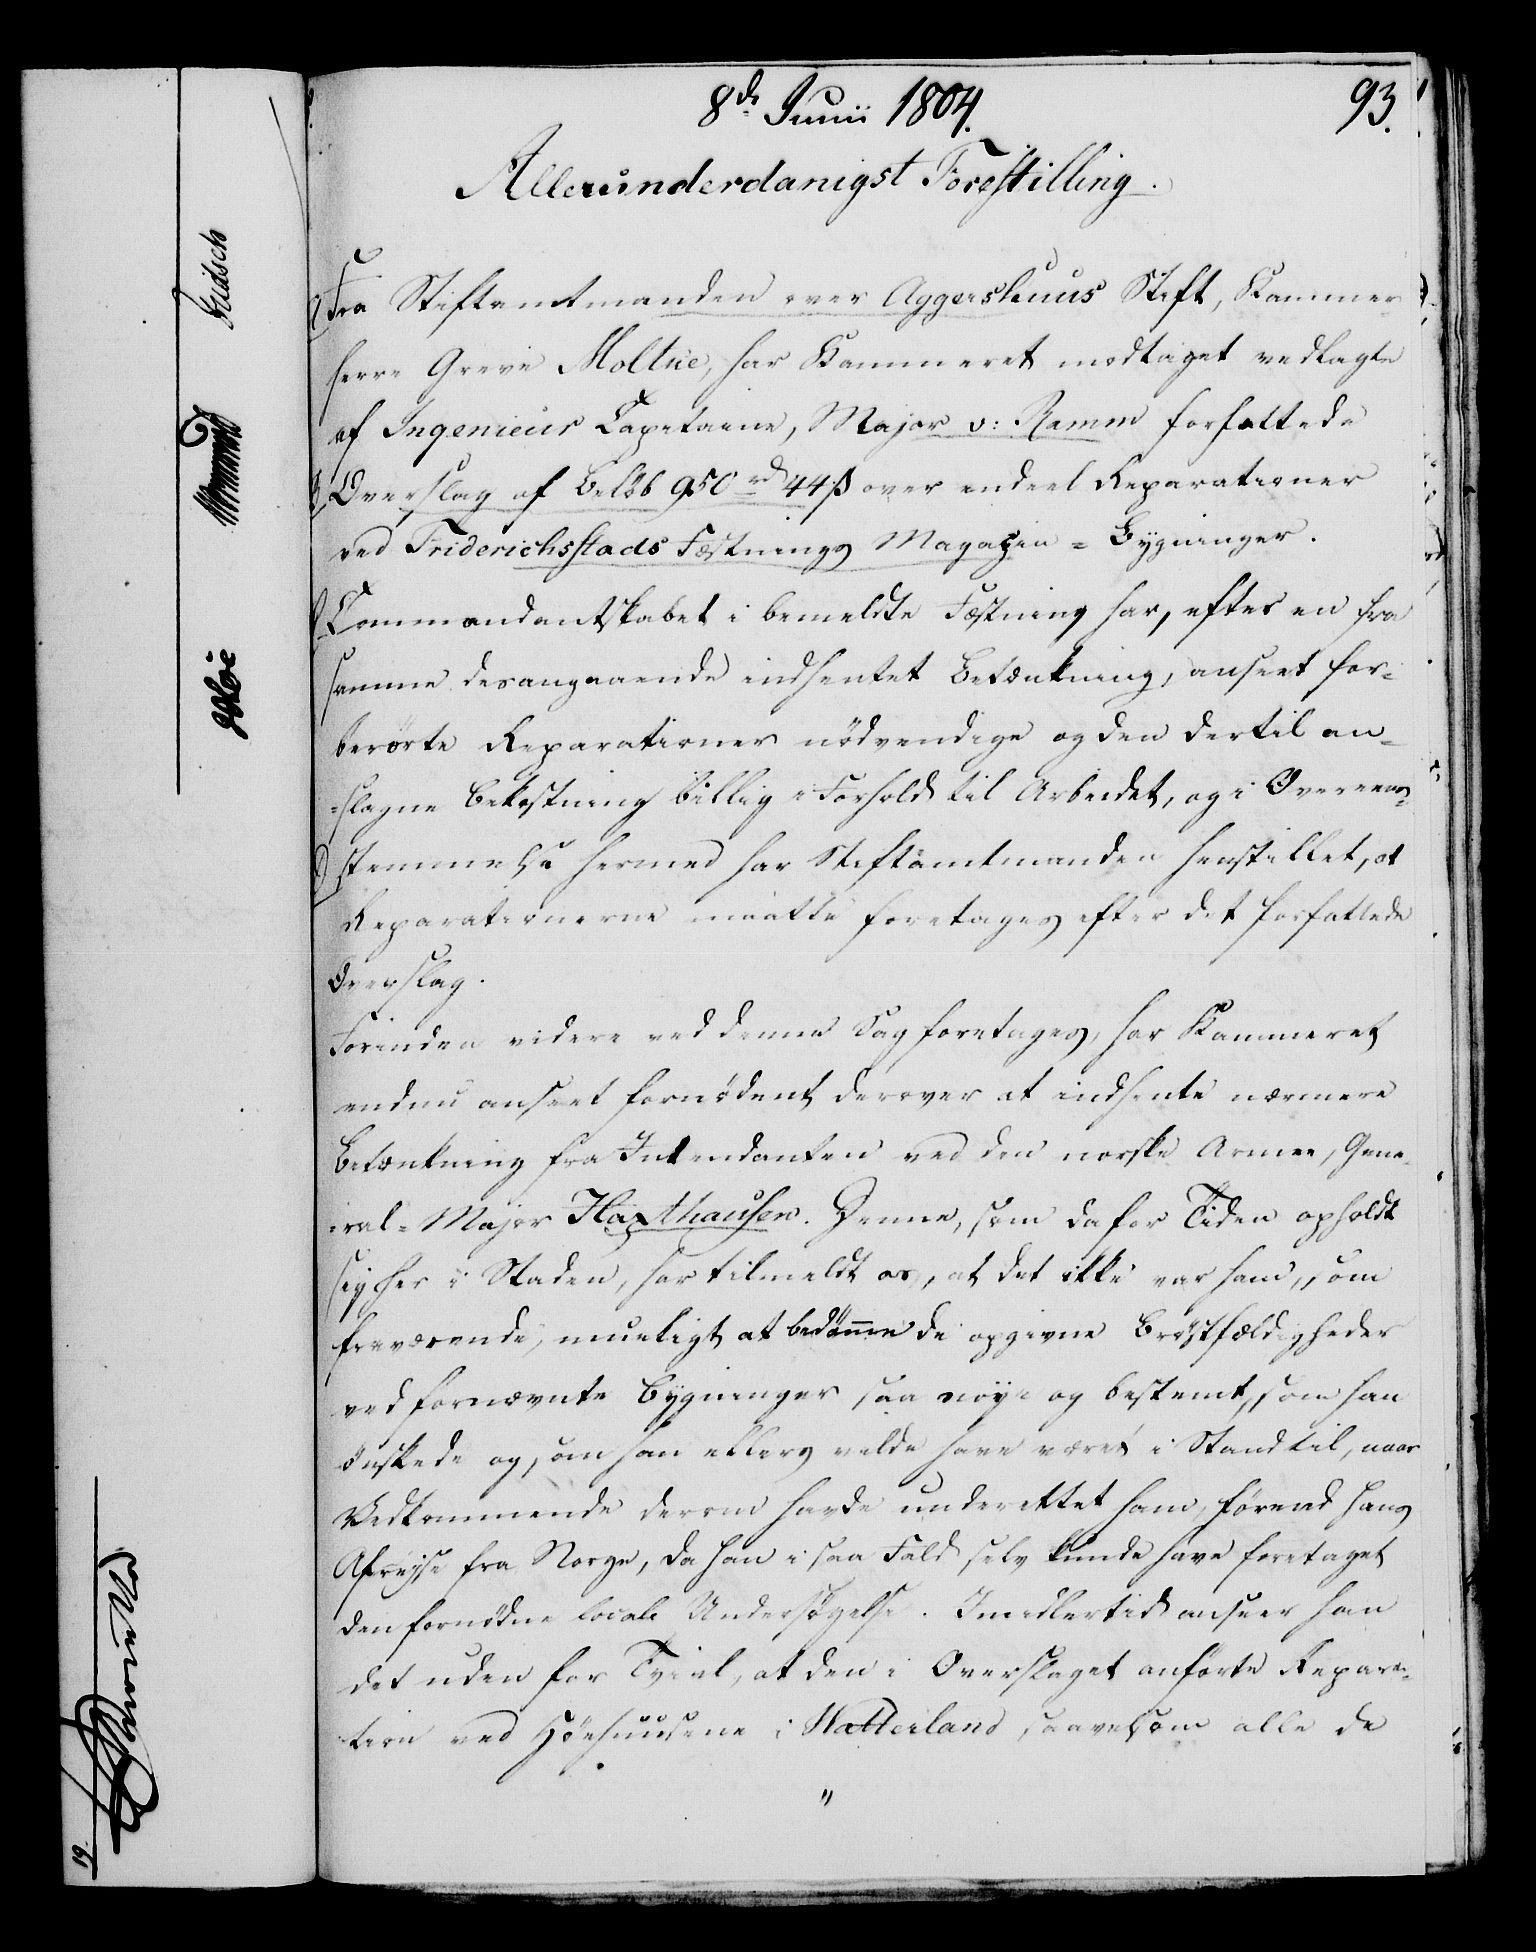 8de Junii 1804.
93.
Allerunderdanigst Forestilling.
Fra Stiftamtmanden over Aggershuus Stift, Kammer-
herre Greve Moltke, har Kammeret modtaget vedlagte
af Ingenieur Capitaine, Major v: Ramm forfattede
Overslag af Beløb 950 rd 44 ß over endeel Reparationer
ved Friderichsstads Fæstnings Magazin=Bygninger.
Commandantskabet i bemeldte Fæstning har, efter en fra
samme desangaaende indhentet Betænkning, anseet for-
berørte Reparationer nödvendige og den dertil an-
-slagne Bekostning billig i Forhold til Arbeidet, og i Overeens-
stemmelse hermed har Stiftamtmanden henstillet, at
Reparationerne maatte foretages efter det forfattede
Overslag.
Forinden videre ved denne Sag foretages, har Kammeret
endnu anseet fornödent derover at indhente nærmere
Betænkning fra Intendanten ved den norske Armee, Gene-
-ral-Major Haxthausen. Denne, som da for Tiden opholdt
sig her i Staden, har tilmeldt os, at det ikke var ham, som
fraværende, mueligt at bedömme de opgivne Bröstfældigheder
ved fornævnte Bygninger saa nöye og bestemt, som han
önskede og som han ellers vilde have været i Stand til, naar
Vedkommende derom havde underrettet ham, förend hans
Afreyse fra Norge, da han i saa Fald selv kunde have foretaget
den fornödne locale Undersögelse. Imidlertid anseer han
det uden for Tvivl, at den i Overslaget anförte Repara-
tion ved Höehuusene i Watterland, saavelsom alle de
"
19.